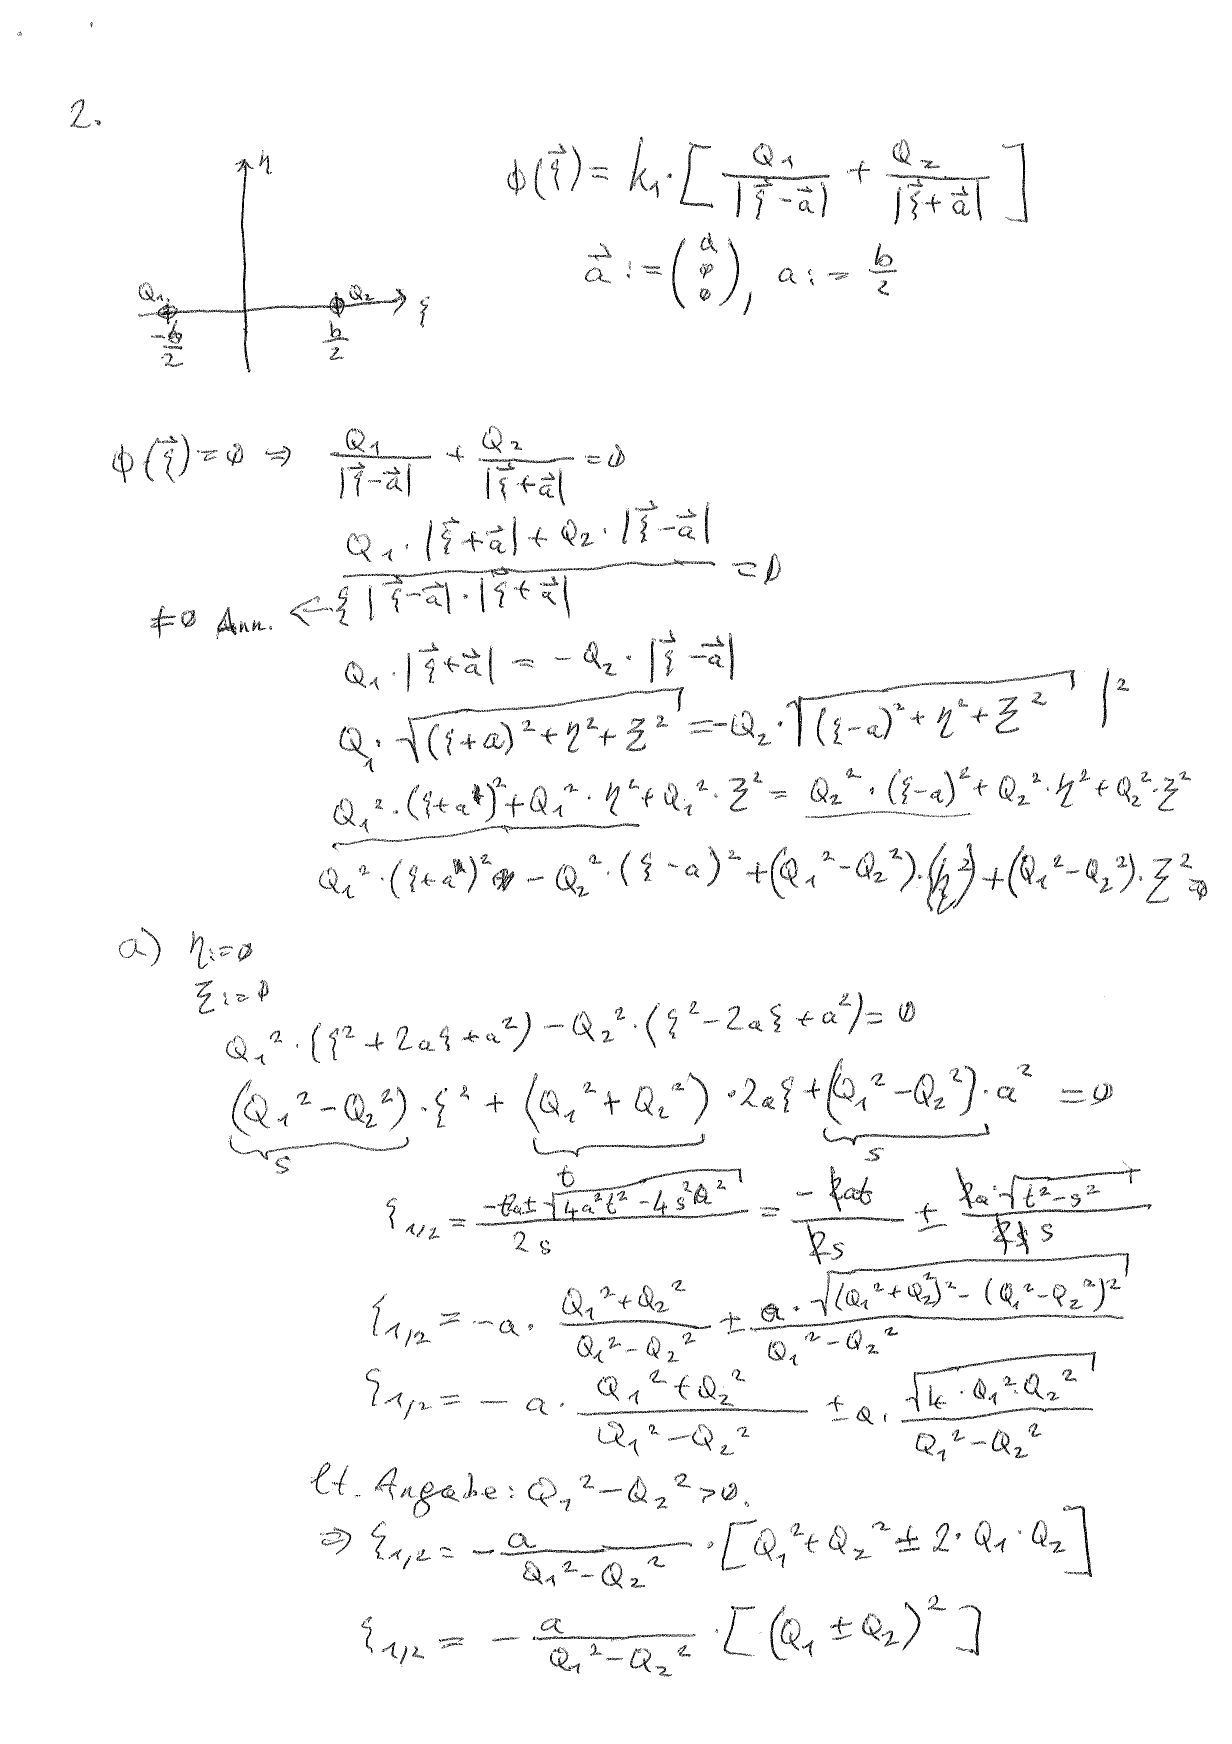 2.
η
Q₁ Q₂ ξ
-b/2 b/2
ϕ(ξ⃗) = k₁·[Q₁/|ξ⃗-a⃗| + Q₂/|ξ⃗+a⃗|]
a⃗ := (a 0 0), a := b/2
ϕ(ξ⃗) = 0 ⇒ Q₁/|ξ⃗-a⃗| + Q₂/|ξ⃗+a⃗| = 0
(Q₁·|ξ⃗+a⃗| + Q₂·|ξ⃗-a⃗|)/(|ξ⃗-a⃗|·|ξ⃗+a⃗|) = 0
≠0 Ann. ←
Q₁·|ξ⃗+a⃗| = -Q₂·|ξ⃗-a⃗|
Q₁·√((ξ+a)²+η²+Ξ²) = -Q₂·√((ξ-a)²+η²+Ξ²) |²
Q₁²·(ξ+a)²+Q₁²·η²+Q₁²·Ξ² = Q₂²·(ξ-a)²+Q₂²·η²+Q₂²·Ξ²
Q₁²·(ξ+a)² - Q₂²·(ξ-a)² + (Q₁²-Q₂²)·(η²) + (Q₁²-Q₂²)·Ξ² = 0
a) η := 0
Ξ := 0
Q₁²·(ξ²+2aξ+a²) - Q₂²·(ξ²-2aξ+a²) = 0
(Q₁²-Q₂²)·ξ² + (Q₁²+Q₂²)·2aξ + (Q₁²-Q₂²)·a² = 0
s t s
ξ₁/₂ = (-2at ± √(4a²t²-4s²a²))/2s = -2at/2s ± 2a·√(t²-s²)/2s
ξ₁/₂ = -a·(Q₁²+Q₂²)/(Q₁²-Q₂²) ± a·√((Q₁²+Q₂²)²-(Q₁²-Q₂²)²)/(Q₁²-Q₂²)
ξ₁/₂ = -a·(Q₁²+Q₂²)/(Q₁²-Q₂²) ± a·√(4·Q₁²·Q₂²)/(Q₁²-Q₂²)
lt. Angabe: Q₁²-Q₂²>0.
⇒ ξ₁,₂ = -a/(Q₁²-Q₂²)·[Q₁²+Q₂²±2·Q₁·Q₂]
ξ₁/₂ = -a/(Q₁²-Q₂²)·[(Q₁±Q₂)²]